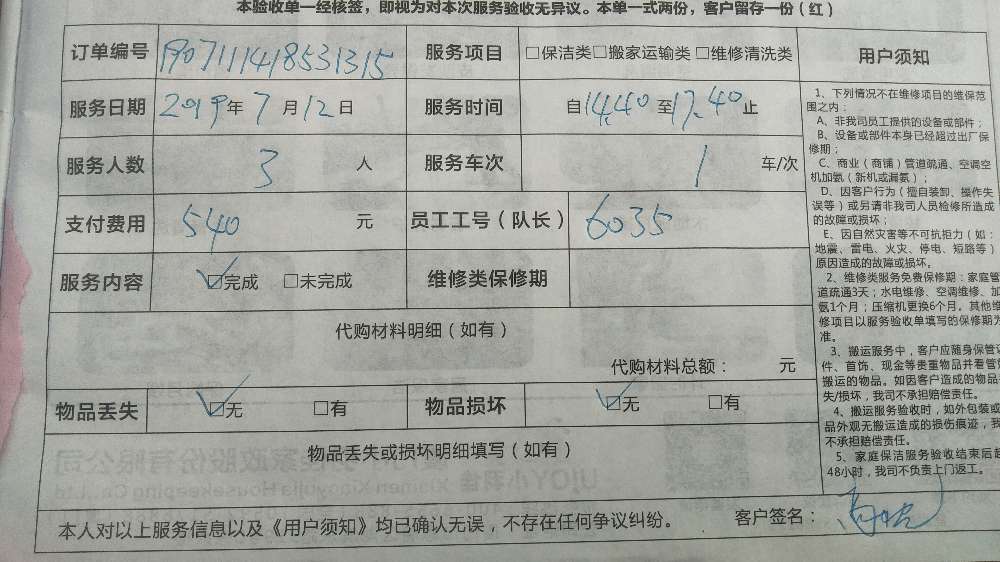 本验收单一经核签，即视为对本次服务验收无异议。本单一式两份，客户留存一份（红）
订单编号 1907111418531315 服务项目 □保洁类□搬家运输类□维修清洗类
服务日期 2019年7月12日 服务时间 自14.40至17.40止
服务人数 3 人 服务车次 1 车/次
支付费用 540 元 员工工号（队长） 6035
服务内容 ☑完成 □未完成 维修类保修期
代购材料明细（如有）
代购材料总额： 元
物品丢失 ☑无 □有 物品损坏 ☑无 □有
物品丢失或损坏明细填写（如有）
本人对以上服务信息以及《用户须知》均已确认无误，不存在任何争议纠纷。 客户签名：
用户须知
1、下列情况不在维修项目的维保范
围之内：
A、非我司员工提供的设备或部件；
B、设备或部件本身已经超过出厂保
修期；
C、商业（商铺）管道疏通、空调空
机加氨（新机或漏氨）；
D、因客户行为（擅自装卸、操作失
误等）或另请非我司人员检修所造成
的故障或损坏；
E、因自然灾害等不可抗拒力（如：
地震、雷电、火灾、停电、短路等）
原因造成的故障或损坏。
2、维修类服务免费保修期：家庭管
道疏通3天；水电维修、空调维修、加
氨1个月；压缩机更换6个月。其他维
修项目以服务验收单填写的保修期为
准。
3、搬运服务中，客户应随身保管证
件、首饰、现金等贵重物品并看管
搬运的物品。如因客户造成的物品
失/损坏，我司不承担赔偿责任。
4、搬运服务验收时，如外包装或
品外观无搬运造成的损伤痕迹，我
不承担赔偿责任。
5、家庭保洁服务验收结束后超
48小时，我司不负责上门返工。